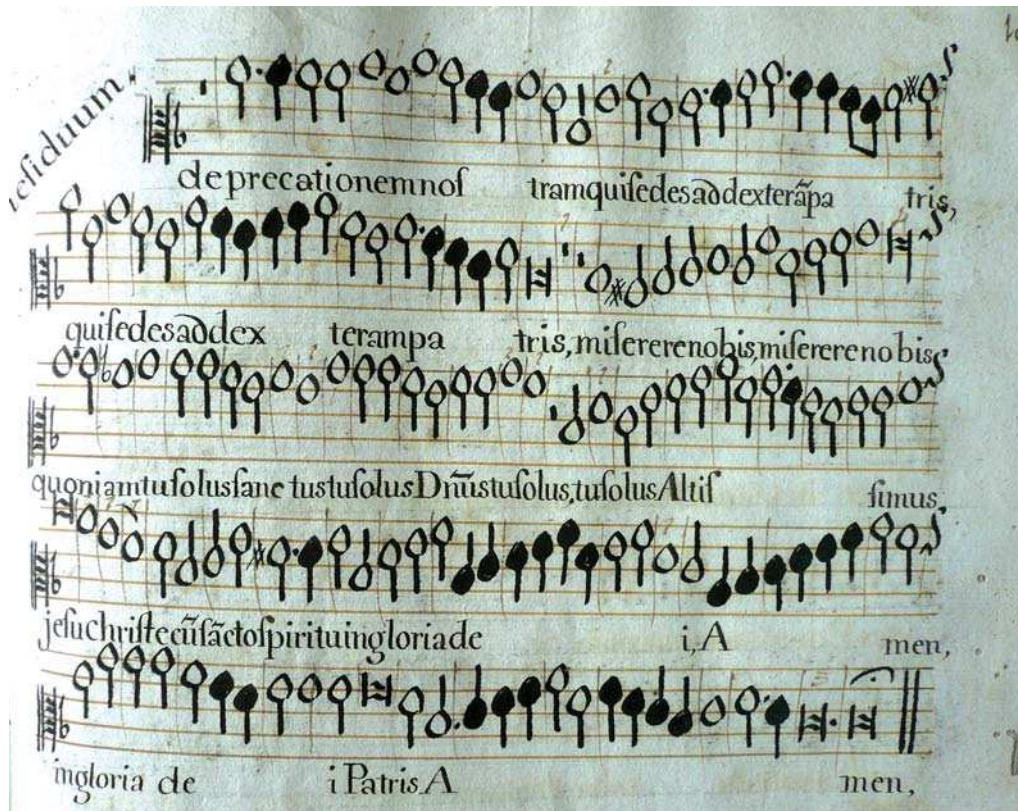 Residuum.
deprecationemnoſ tramquiſedesaddexterãpa tris,
quiſedesaddex terampa tris, miſererenobis, miſererenobis
quoniamtuſolusſanc tustuſolusDñustuſolus, tuſolusAltiſ ſimus,
jeſuchriſtecũſãctoſpirituingloriade i, A men,
ingloria de i Patris A men,